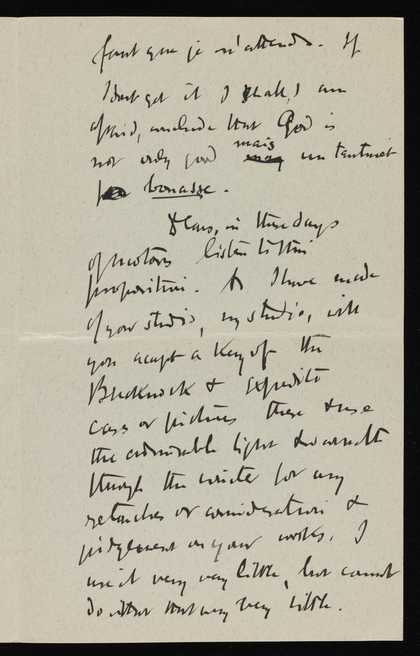 faut que je m'attende. If
I don't get it I shall, I am
afraid, conclude that God is
not only good mais un tantinet
bonasse.
Dear, in these days
of motors listen to this
proposition. As I have made
of your studio, my studio, will
you accept a key of the
& expedite
cases or pictures there & use
the admirable light & warmth
through the winter for any
retouches or consideration &
judgement on your works. I
use it very very little, but cannot
do without that very very little.